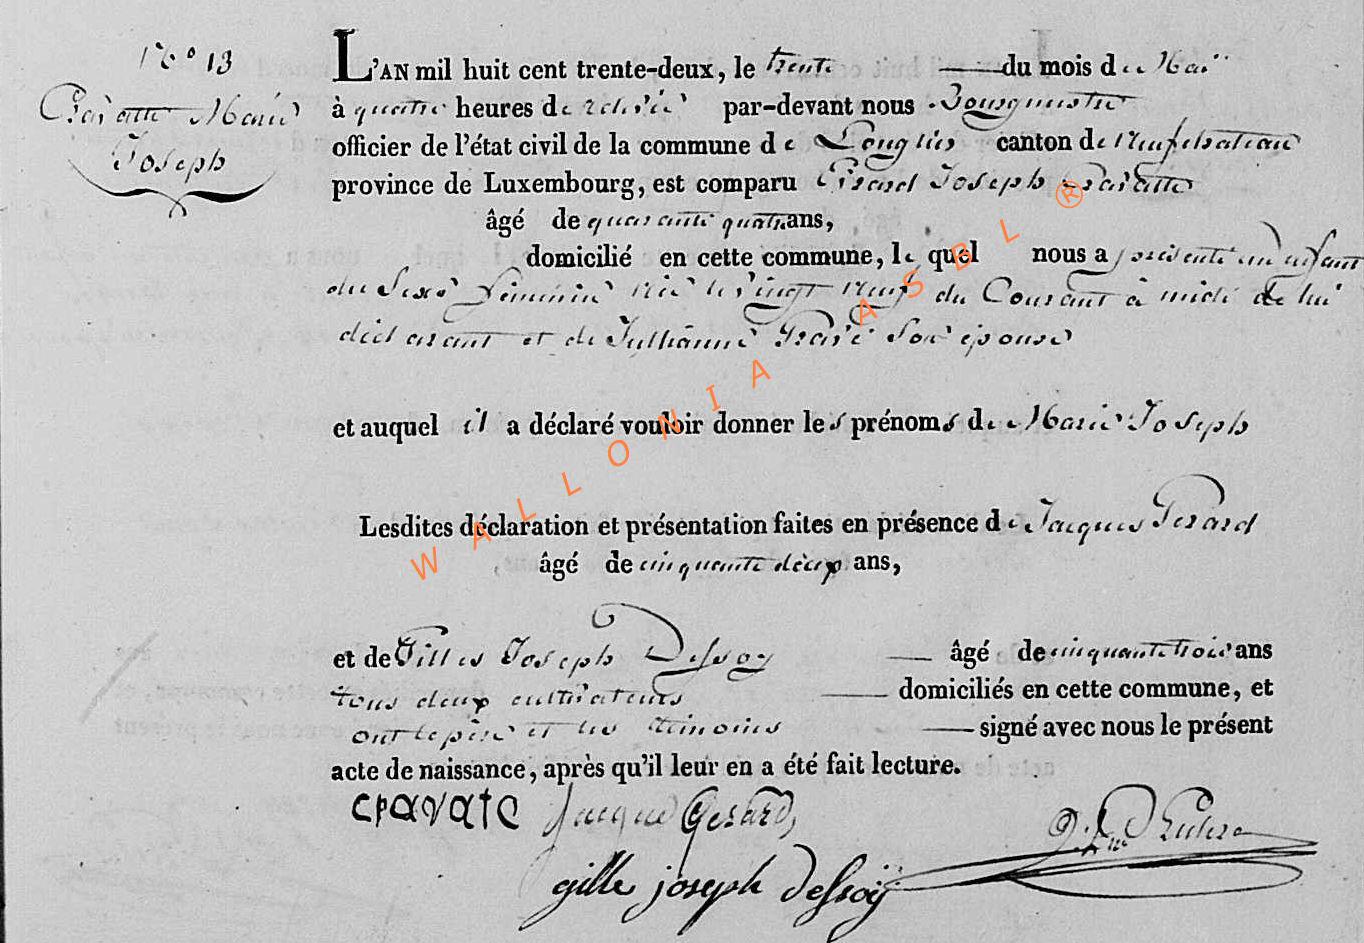 N° 13
Cravatte Marie
Joseph
L'AN mil huit cent trente-deux, le trente du mois de Mai
à quatre heures de relevée par-devant nous Bourgmestre
officier de l'état civil de la commune de Longlier canton de neufchateau
province de Luxembourg, est comparu Gerard Joseph Cravatte
âgé de quarante quatre ans,
domicilié en cette commune, le quel nous a presenté un enfant
du Sexe féminin née le vingt neuf du Courant à midi de lui
déclarant et de Julianne son épouse
et auquel il a déclaré vouloir donner les prénoms de Marie Joseph
Lesdites déclaration et présentation faites en présence de Jacques Gerard
âgé de cinquante deux ans,
et de Gilles Joseph Dessoy âgé de cinquante trois ans
tous deux cultivateurs domiciliés en cette commune, et
ont le père et les témoins signé avec nous le présent
acte de naissance, après qu'il leur en a été fait lecture.
cravate Jacque Gerard
gille joseph dessoÿ
WALLONIA ASBL ®